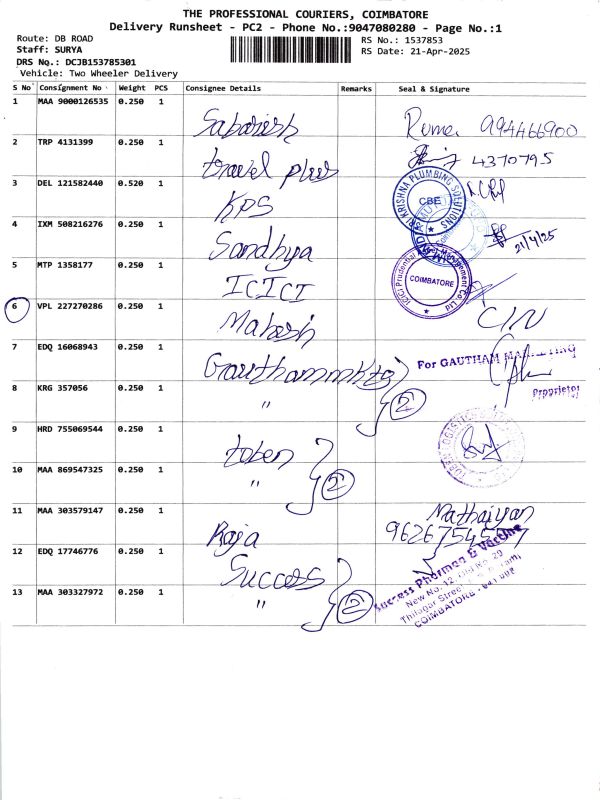 THE PROFESSIONAL COURIERS, COIMBATORE
Delivery Runsheet - PC2 - Phone No.:9047080280 - Page No.:1
Route: DB ROAD
RS No.: 1537853
Staff: SURYA
RS Date: 21-Apr-2025
DRS No.: DCJB153785301
Vehicle: Two Wheeler Delivery
S No Consignment No Weight PCS Consignee Details Remarks Seal & Signature
1 MAA 9000126535 0.250 1 Sabarish
2 TRP 4131399 0.250 1 travel plus 4370795
3 DEL 121582440 0.520 1 KPS
KRISHNA PLUMBING SOLUTIONS
CBE
4 IXM 508216276 0.250 1 Sandhya 21/4/25
5 MTP 1358177 0.250 1 ICICI
ICICI Prudential Management Co Ltd
COIMBATORE
6 VPL 227270286 0.250 1 Mahesh C/N
7 EDQ 16068943 0.250 1 Gautham mktg
For GAUTHAM
Proprietor
8 KRG 357056 0.250 1 " 2
9 HRD 755069544 0.250 1 toben
10 MAA 869547325 0.250 1 " 2
11 MAA 303579147 0.250 1 Raja Mathaiyan
12 EDQ 17746776 0.250 1 Success
Success Pharma & Vaccine
New No. 12, Old No. 29
Thilagar Street
COIMBATORE
13 MAA 303327972 0.250 1 " 2